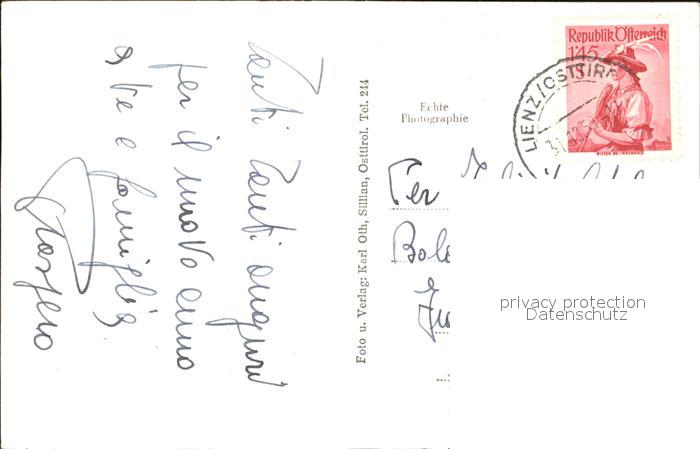 Tanti Tanti auguri
per il nuovo anno
a te e famiglia
Foto u. Verlag: Karl Oth, Sillian, Osttirol. Tel. 244
Echte
Photographie
Republik Österreich
1.45
S
WILTEN BEI INNSBRUCK
LIENZ/OSTTIR
privacy protection
Datenschutz